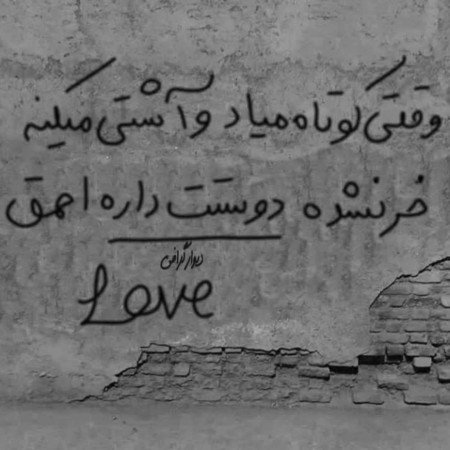 وقتی کوتاه میاد و آشتی میکنه
خر نشده دوستت داره احمق
دیوارگرافی
Love